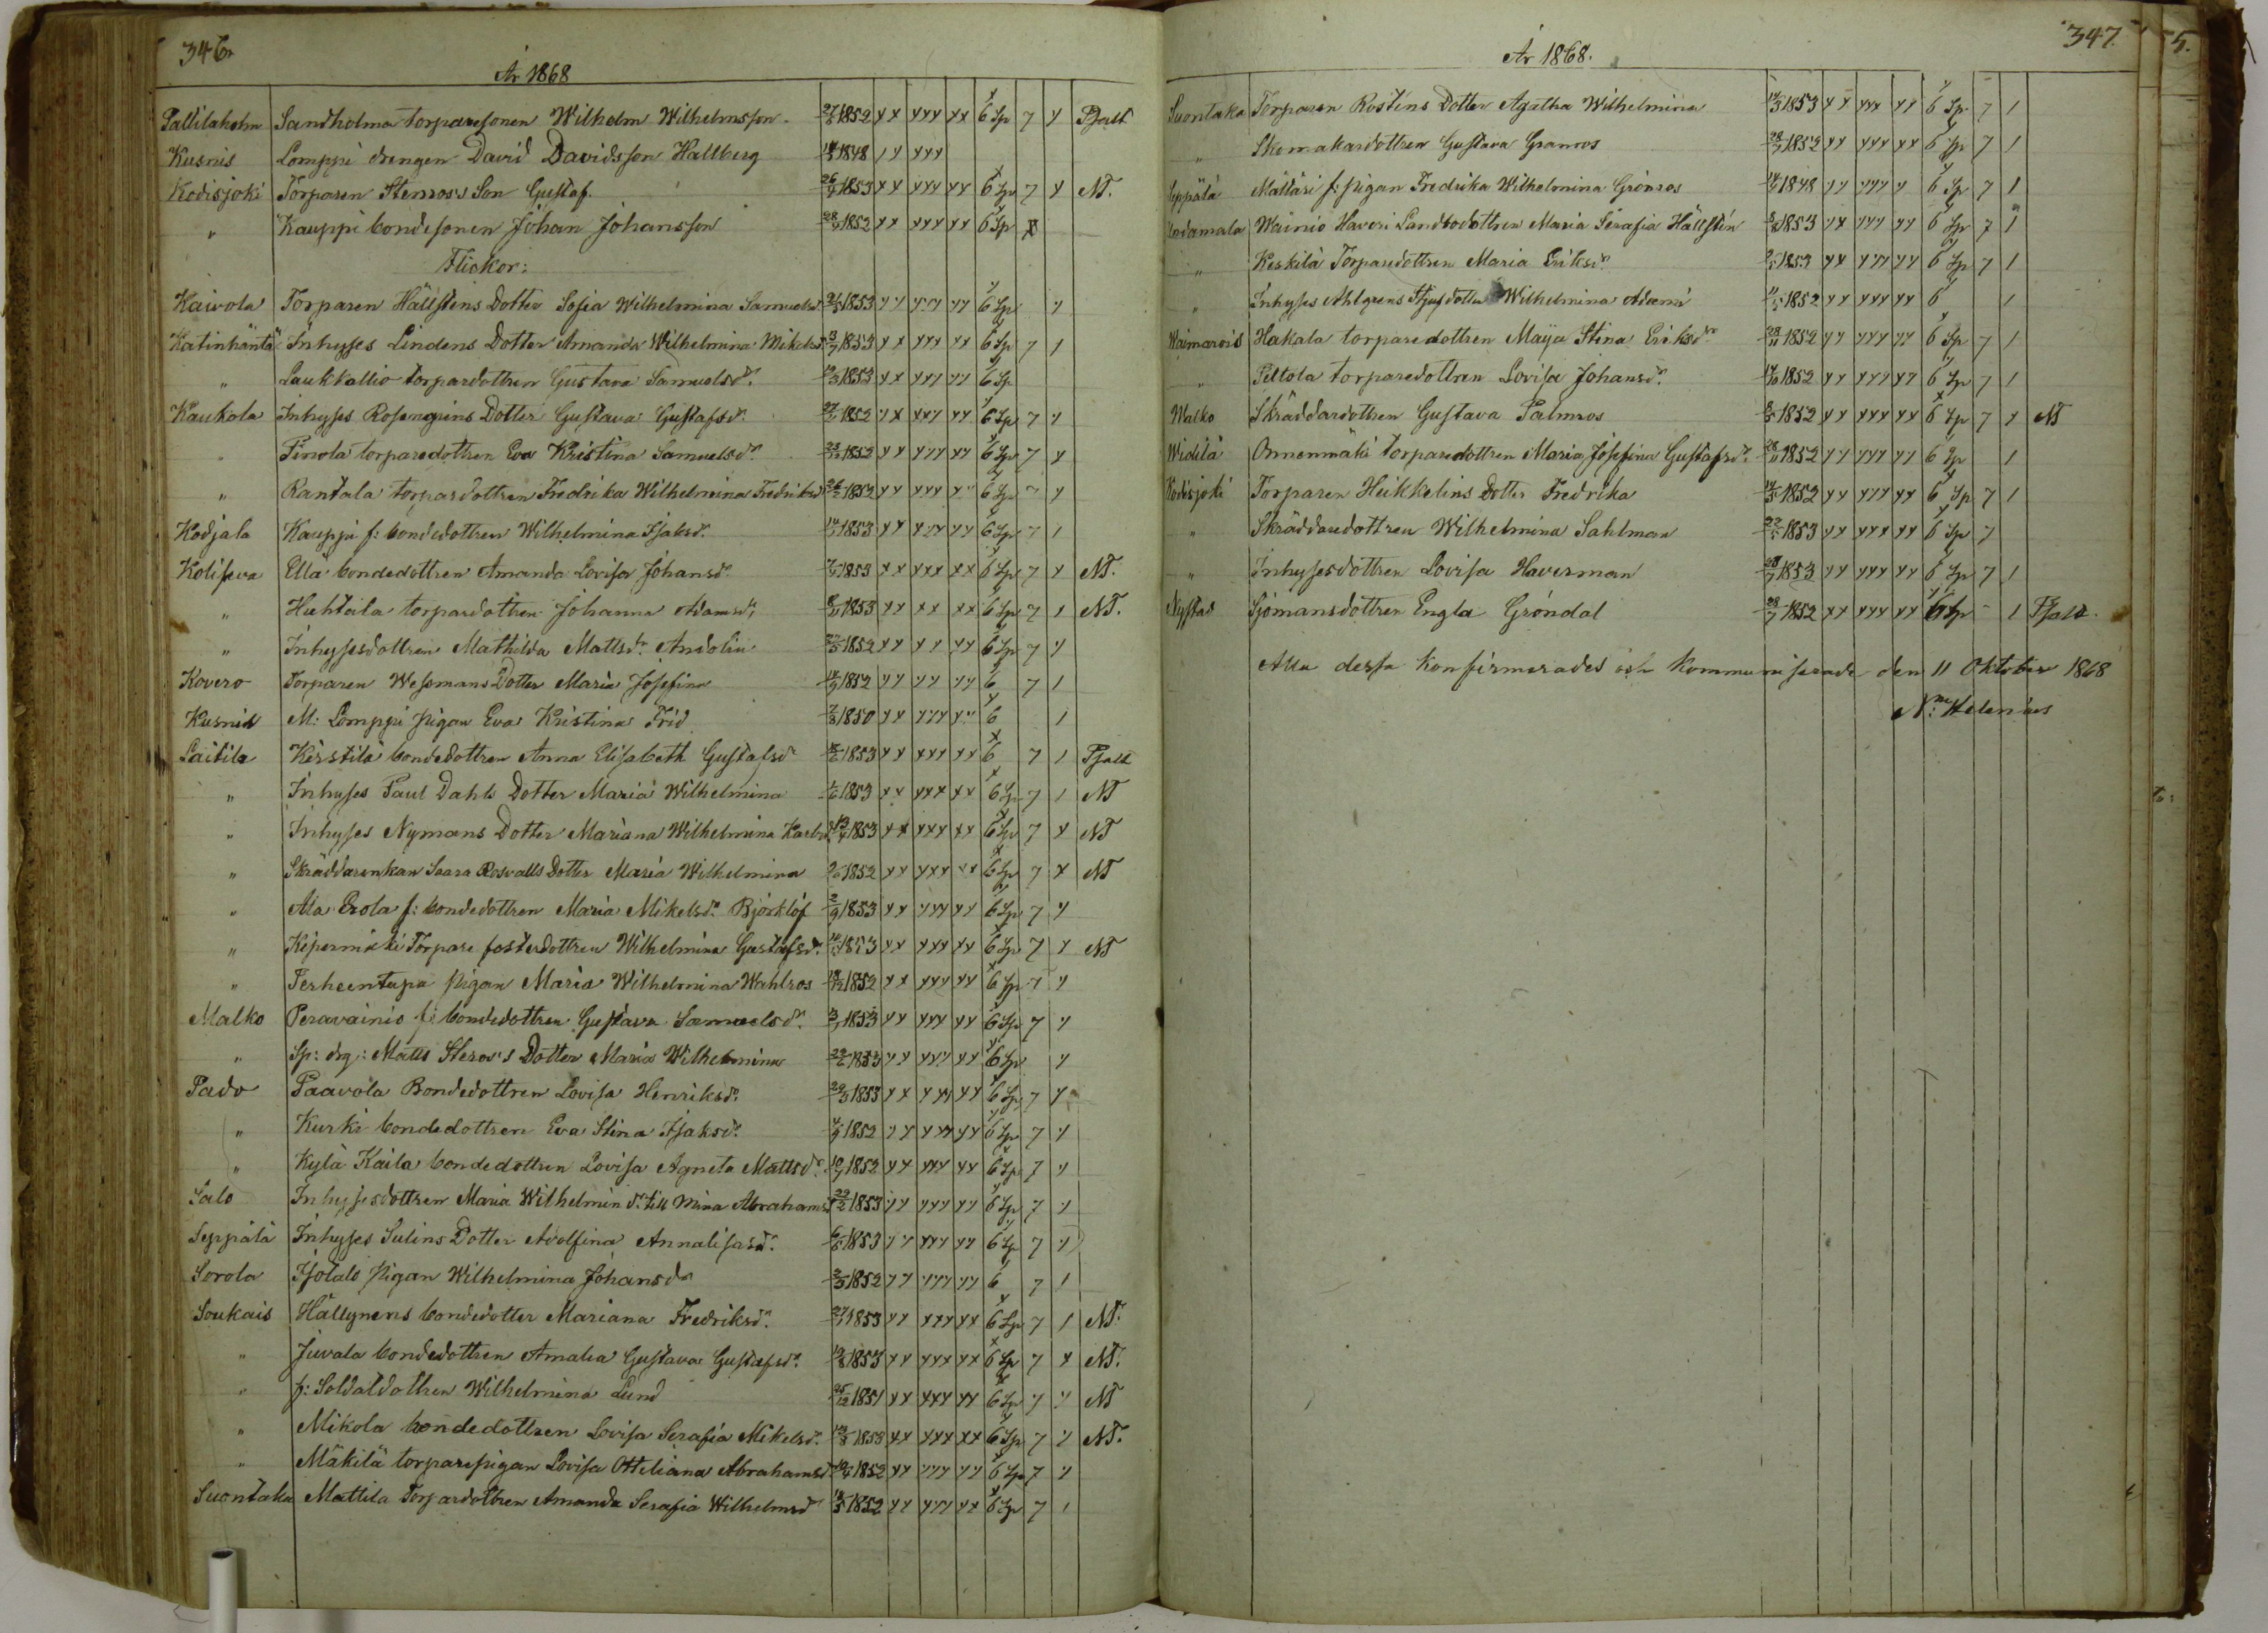 346
År 1868
Pattilaholm Sandholma torparesonen Wilhelm Wilhelmsson 27/5 1852 xx xxx xx 6 Sp 7 x Psalt
Kusnis Lomppi drengen David Davidsson Hallberg 1848 xx xxx
Kodisjoki Torparen Stenros's Son Gustaf. 1853 xx xxx xx 6 Sp 7 x NT.
" Kauppi bondesonen Johan Johansson 1852 xx xxx xx 6 Sp x
Flickor:
Kaivola Torparen Hällstens Dotter Sofia Wilhelmina Samuelsd. 1853 xx xxx xx 6 Sp x
Katinhäntä Inhyses Lindens Dotter Amanda Wilhelmina Mikelsd. 1853 xx xxx xx 6 Sp 7 1
" Laukkallio torpardottren Gustava Samuelsdr. 1853 xx xxx xx 6 Sp
Kaukola Inhyses Rosengrins Dotter Gustava Gustafsdr. 1852 xx xxx xx 6 Sp 7 x
" Finola torparedottren Eva Kristina Samuelsdr. 1852 xx xxx xx 6 Sp 7 x
" Rantala torpardottren Fredrika Wilhelmina Fredriksd. 1852 xx xxx xx 6 Sp 7 x
Kodjala Kauppi f: bondedottren Wilhelmina Isaksdr. 1853 xx xxx xx 6 Sp 7 1
Koliseva Ella bondedottren Amanda Lovisa Johansdr 1853 xx xxx xx 6 Sp 7 x NT.
" Huhtala torpardottren Johanna Adamsdr 1853 xx xx xx 6 Sp 7 x NT.
" Inhysesdottren Mathilda Mattsdr. Andolin 1852 xx xx xx 6 Sp 7 x
Kovero Torparen Wessmans Dotter Maria Josefina 1852 xx xx xx 6 7 1
Kusnis M: Lomppi pigan Eva Kristina Frid 1850 xx xxx xx 6 1
Laitila Kirstilä bondedottren Anna Elisabeth Gustafsdr 1853 xx xxx xx 6 7 1 Psalt
" Inhyses Paul Dahls Dotter Maria Wilhelmina 1853 xx xxx xx 6 Sp 7 1 NT
" Inhyses Nymans Dotter Mariana Wilhelmina Karlsd. 1853 xx xxx xx 6 Sp 7 x NT
" Skräddarenkan Saara Rosvalls Dotter Maria Wilhelmina 1852 xx xxx xx 6 Sp 7 x NT
" Ala Erola f: bondedottren Maria Mikelsdr. Björklöf 2/9 1853 xx xxx xx 6 Sp 7 x
" Torpare fosterdottren Wilhelmina Gustafsdr. 1853 xx xxx xx 6 Sp 7 x NT
" Perheentupa pigan Maria Wilhelmina Wahlros 1852 xx xxx xx 6 Sp 7 x
Malko Peravainio f: bondedottren Gustava Samuelsdr. 1853 xx xxx xx 6 Sp 7 x
" Sp: drg: Matts Steros's Dotter Maria Wilhelmina 1853 xx xxx xx 6 Sp x
Pado Paavola Bondedottren Lovisa Henriksdr. 1853 xx xxx xx 6 Sp 7 x
" Kurki bondedottren Eva Stina Isaksdr. 1852 xx xxx xx 6 Sp 7 x
" Kylä Kaila bondedottren Lovisa Agneta Mattsdr. 1852 xx xxx xx 6 Sp 7 x
Salo Inhysesdottren Maria Wilhelmin dr. till Mina Abrahamsd 1853 xx xxx xx 6 Sp 7 x
Seppälä Inhyses Sulins Dotter Adolfina Annalisasdr. 1853 xx xxx xx 6 Sp 7 x
Sorola Isotalo pigan Wilhelmina Johansdr 1852 xx xxx xx 6 7 1
Soukais Hällynens bondedotter Mariana Fredriksdr. 1853 xx xxx xx 6 Sp 7 1 NT.
" Juvala bondedottren Amalia Gustava Gustafsdr. 1853 xx xxx xx 6 Sp 7 x NT.
" f: Soldatdottren Wilhelmina Lund 25/12 1851 xx xxx xx 6 Sp 7 x NT
" Mikola bondedottren Lovisa Serafia Mikelsdr. 1853 xx xxx xx 6 Sp 7 x NT.
" Mäkilä torparepigan Lovisa Ottiliana Abrahamsd. 1852 xx xxx xx 6 Sp 7 x
Suontaka Mattila Torpardottren Amanda Serafia Wilhelmsdr 1852 xx xxx xx 6 Sp 7 1
347.
År 1868.
Suontaka Torparen Rostens Dotter Agatha Wilhelmina 1853 xx xxx xx 6 Sp 7 1
" Skomakardottren Gustava Granros 1852 xx xxx xx 6 Sp 7 1
Seppälä Mättäri f: pigan Fredrika Wilhelmina Grönros 1848 xx xxx x 6 Sp 7 1
Wainio Haveri Landbodottren Maria Serafia Hällstén 1853 xx xxx xx 6 Sp 7 1
" Keskilä Torparedottren Maria Eriksdr. 1853 xx xxx xx 6 Sp 7 1
" Inhyses Ahlgrens Stjufdotter Wilhelmina Adami 1852 xx xxx xx 6 1
Waimarois Hakala torparedottren Maija Stina Eriksdr. 1852 xx xxx xx 6 Sp 7 1
" Peltola torparedottren Lovisa Johansdr. 1852 xx xxx xx 6 Sp 7 1
Malko Skräddardottren Gustava Palmros 1852 xx xxx xx 6 Sp 7 x NT
Widilä Onnenmäki torparedottren Maria Josefina Gustafsdr. 1852 xx xxx xx 6 Sp 1
Kodisjoki Torparen Heikkelins Dotter Fredrika 1852 xx xxx xx 6 Sp 7 1
" Skräddaredottren Wilhelmina Sahlman 1853 xx xxx xx 6 Sp 7
" Inhysesdottren Lovisa Haverman 1853 xx xxx xx 6 Sp 7 1
Nystad Sjömansdottren Engla Gröndal 1852 xx xxx xx 6 Sp - 1 Psalt.
Alla dessa konfirmerades och kommuniserade den 11 Oktober 1868
Helenius